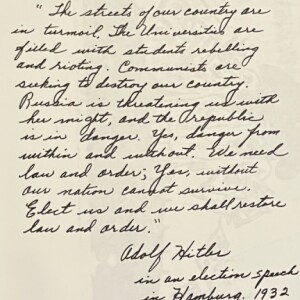 "The streets of our country are
in turmoil. The Universities are
filled with students rebelling
and rioting. Communists are
seeking to destroy our country.
Russia is threatening us with
her might, and the Republic
is in danger. Yes, danger from
within and without. We need
law and order; Yes, without
our nation cannot survive.
Elect us and we shall restore
law and order."
Adolf Hitler
in an election speech
in Hamburg, 1932